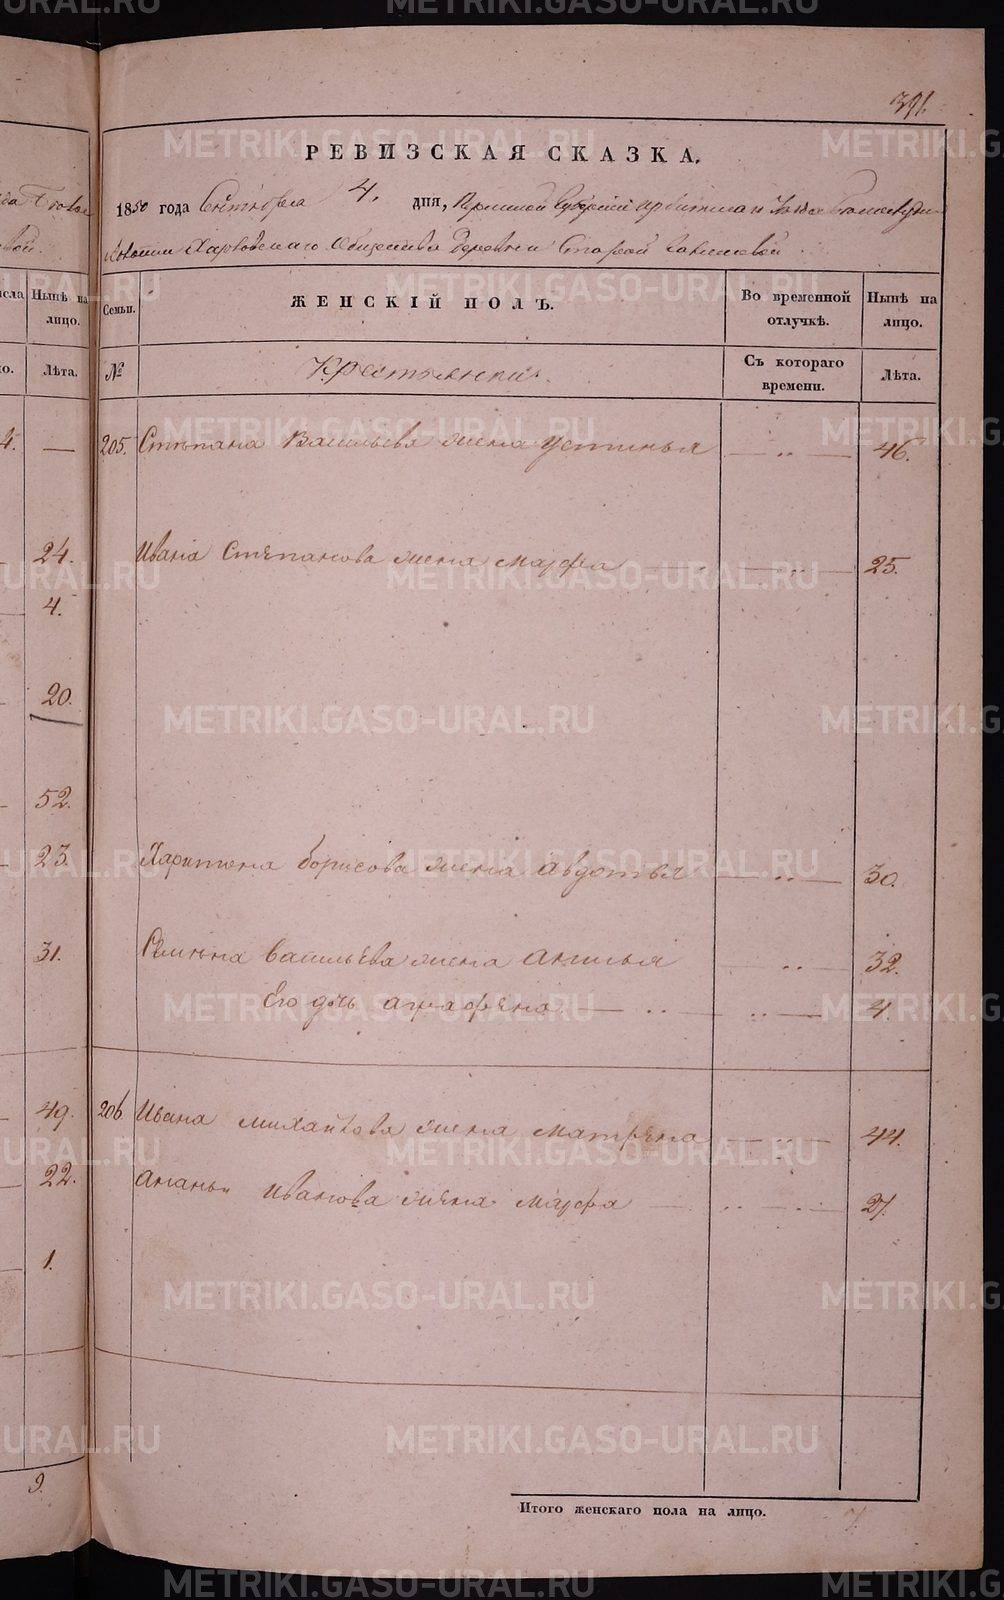 391.
РЕВИЗСКАЯ СКАЗКА.
1850 года Сентября 4. дня, Пермской Губернии Ирбитскаго Уезда
Волости Харловскаго Общества Деревни Старой
Семьи. ЖЕНСКІЙ ПОЛЪ. Во временной отлучкѣ. Нынѣ на лицо.
№ Крестьянки. Съ котораго времени. Лѣта.
205. Степана Васильева жена Устинья — .. — 46.
Ивана Степанова жена Марфа — .. — 25.
Харитона Борисова жена Авдотья — .. — 30.
Семена Васильева жена Акилья — .. — 32.
Его дчь Аграфена — .. — .. — 4.
206 Ивана Михайлова жена Матрена — .. — 44.
Ананьи Иванова жена Марфа — .. — . — 21.
Итого женскаго пола на лицо. 7.
Нынѣ на лицо.
Лѣта.
4. —
24.
4.
20.
52.
23.
31.
49.
22.
1.
9.
METRIKI.GASO-URAL.RU